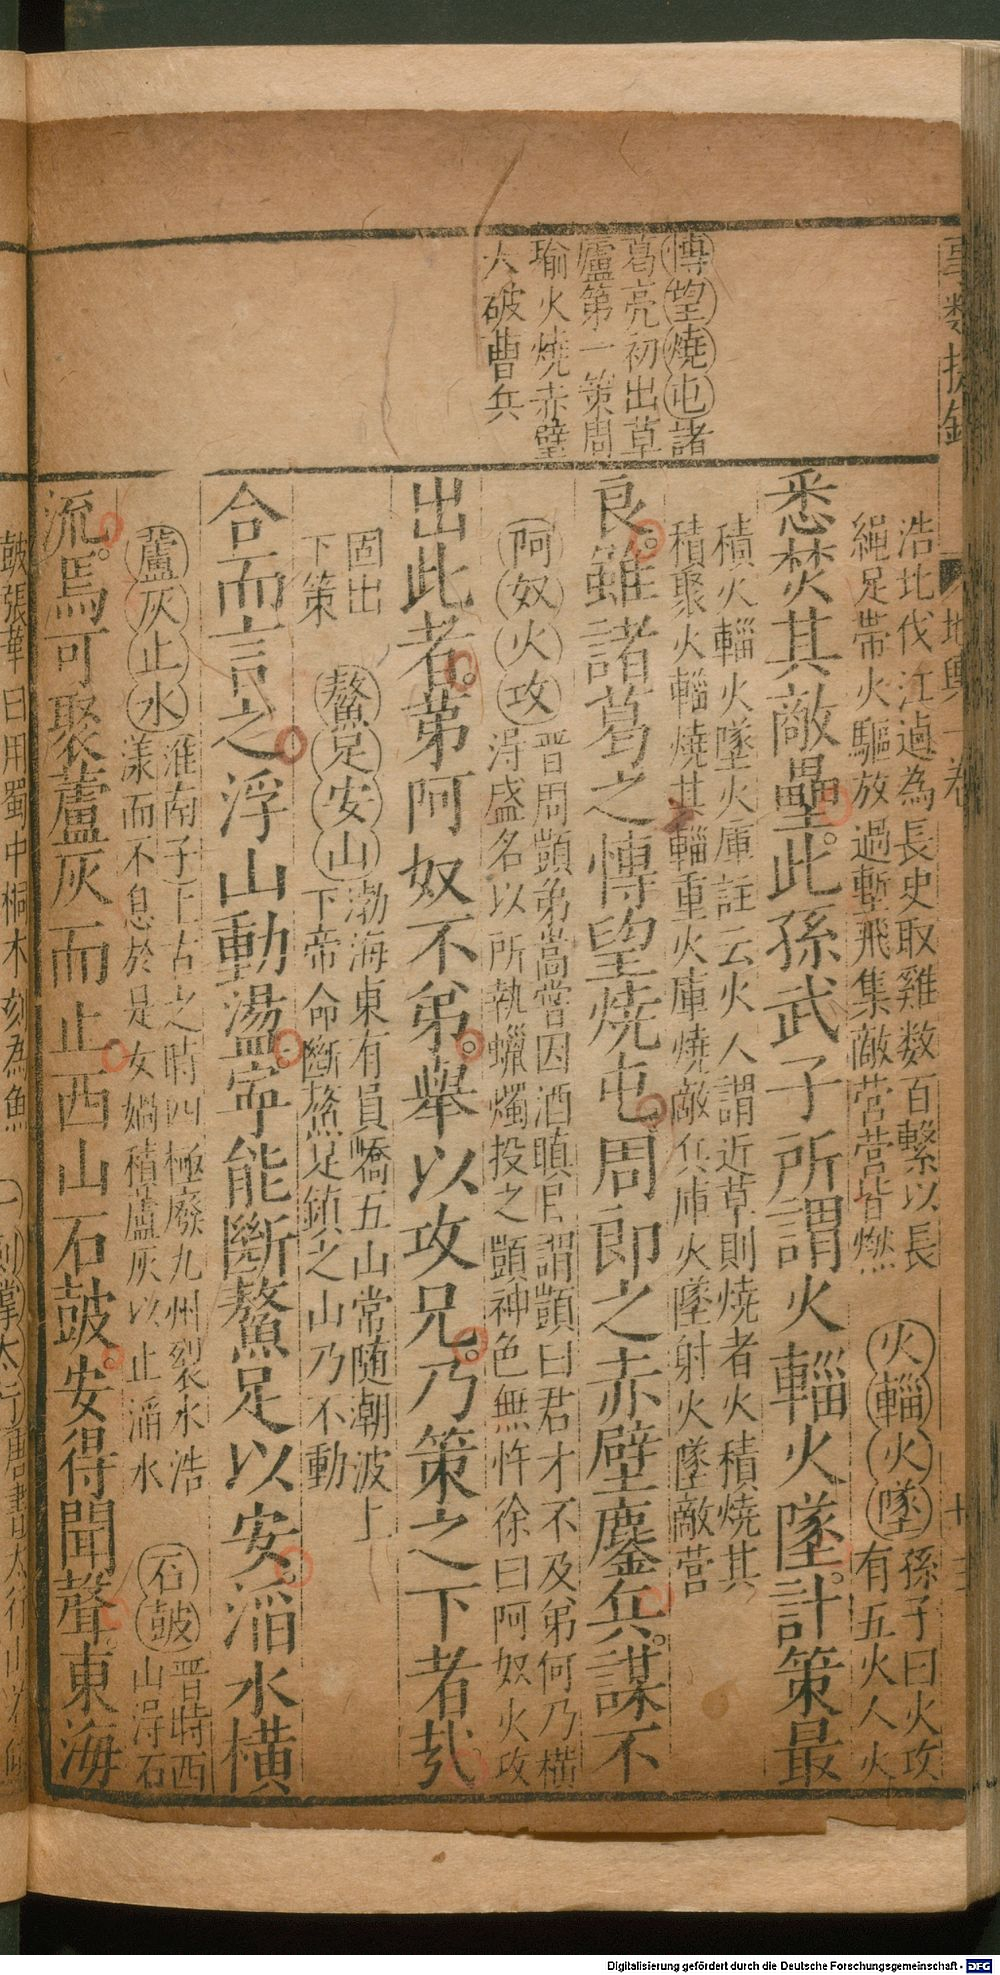 地輿一卷
十三
博望燒屯諸
葛亮初出草
廬第一策周
瑜火燒赤壁
大破曹兵
浩北伐江逌為長史取雞数百繫以長
繩足帶火驅放過塹飛集敵营营皆燃
火輜火墜孫子曰火攻
有五火人火
悉焚其敵壘此孫武子所謂火輜火墜計策最
積火輜火墜火庫註云火人謂近草則燒者火積燒其
積聚火輜燒其輜重火庫燒敵兵庫火墜射火墜敵营
良雖諸葛之博望燒屯周郎之赤壁鏖兵謀不
阿奴火攻
晋周顗弟嵩嘗因酒瞋目謂顗曰君才不及弟何乃橫
淂盛名以所執蠟燭投之顗神色無忤徐曰阿奴火攻
出此者第阿奴不弟舉以攻兄乃策之下者㢤
固出
下策
鰲足安山
渤海東有員嶠五山常随潮波上
下帝命斷鰲足鎮之山乃不動
合而言之浮山動盪寧能斷鰲足以安滔水橫
蘆灰止水
淮南子上古之時四極廢九州裂水浩
漾而不息於是女媧積蘆灰以止滔水
石鼓
晋時西
山淂石
流焉可聚蘆灰而止西山石鼓安得聞聲東海
鼓張華曰用蜀中桐木刻為魚
唐書太行山
Digitalisierung gefördert durch die Deutsche Forschungsgemeinschaft - DFG